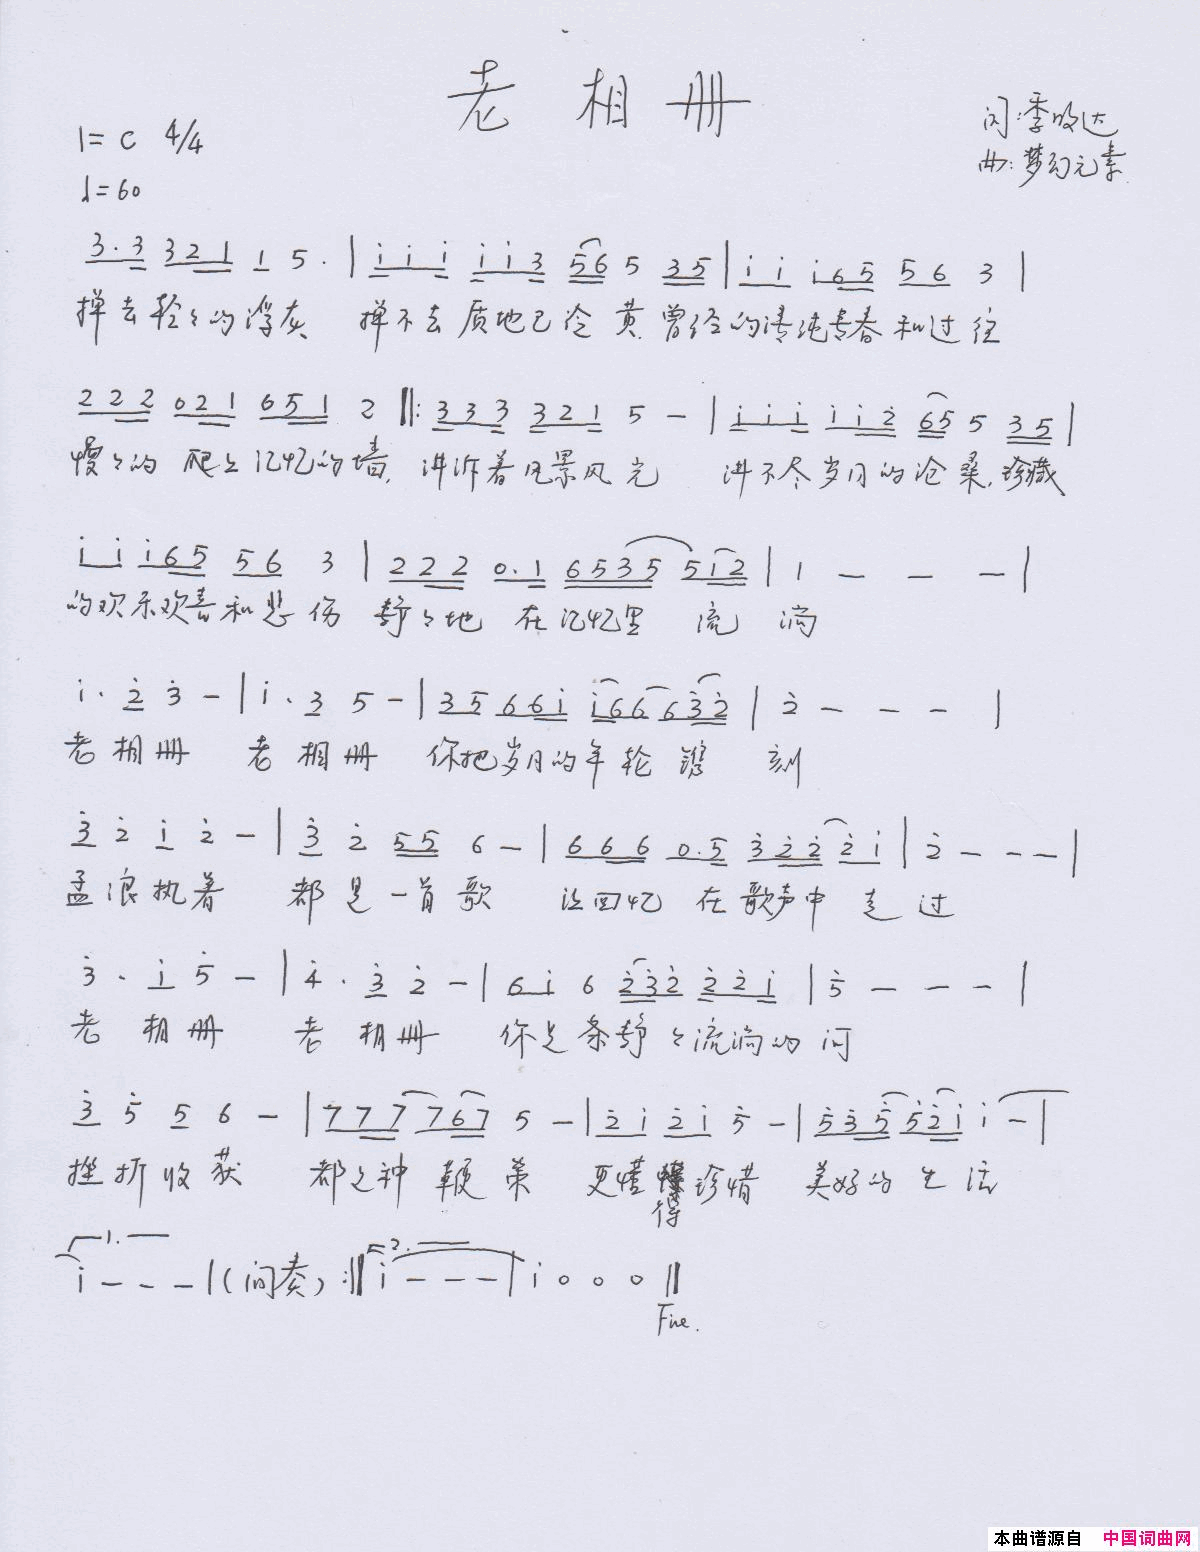 老相册
1=C 4/4
词:季收达
曲:梦幻元素
♩=60
3·3 321 1 5· | i i i i i 3 56 5 35 | i i i65 56 3 |
掸去轻々的浮灰 掸不去质地已泛黄 曾经的清纯青春和过往
2 2 2 021 651 2 ‖: 333 321 5 — | i i i i i 2 65 5 35 |
慢々的 爬上记忆的墙, 讲诉着风景风光 讲不尽岁月的沧桑,珍藏
i i i65 56 3 | 222 0·1 6535 5i2 | 1 — — — |
的欢乐欢喜和悲伤 静々地 在记忆里 流淌
i· 2 3 — | i· 3 5 — | 35 66i i66 632 | 2 — — — |
老相册 老相册 你把岁月的年轮镌刻
3 2 i 2 — | 3 2 55 6 — | 666 0·5 322 2i | 2 — — — |
孟浪执着 都是一首歌 让回忆 在歌声中走过
3· i 5 — | 4· 3 2 — | 6i 6 232 22i | 5 — — — |
老相册 老相册 你是条静々流淌的河
3 5 5 6 — | 777 767 5 — | 2i 2i 5 — | 535 52i i — |
挫折收获 都是种鞭策 更懂得珍惜 美好的生活
1.
i — — — | (间奏) :‖ 2. i — — — | i 0 0 0 ‖
Fine.
本曲谱源自 中国词曲网